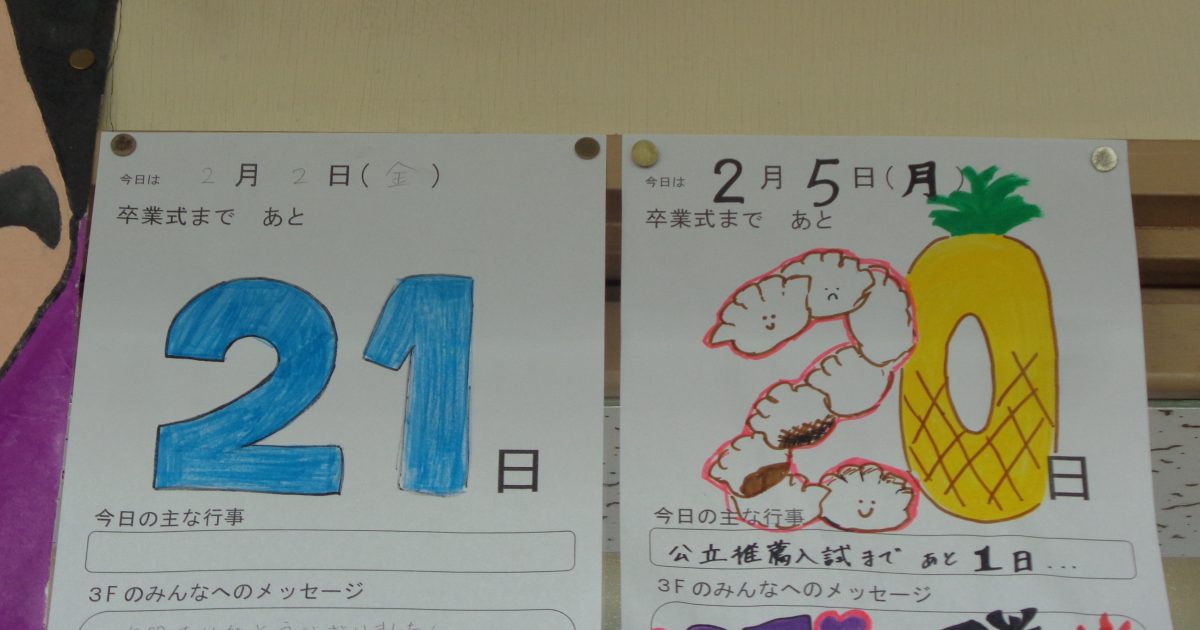 今日は 2 月 2 日(金)
卒業式まで あと
21日
今日の主な行事
3Fのみんなへのメッセージ
今日は 2月5日(月)
卒業式まで あと
20日
今日の主な行事
公立推薦入試まで あと1日...
3Fのみんなへのメッセージ